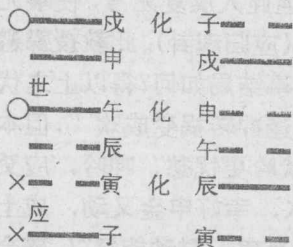 ○戌 化 子
申 戌
世
○午 化 申
辰 午
×寅 化 辰
应
×子 寅